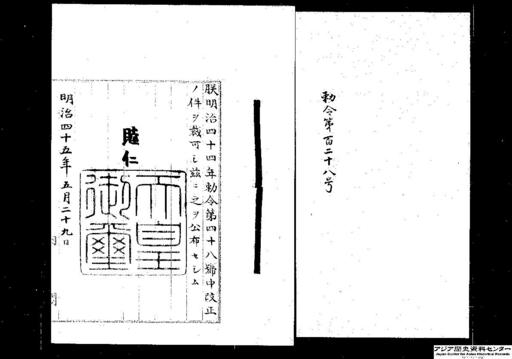 勅令第百二十八号
朕明治四十四年勅令第四十八號中改正
ノ件ヲ裁可シ茲ニ之ヲ公布セシム
睦仁
天皇御璽
明治四十五年五月二十九日
内閣
アジア歴史資料センター
Japan Center for Asian Historical Records